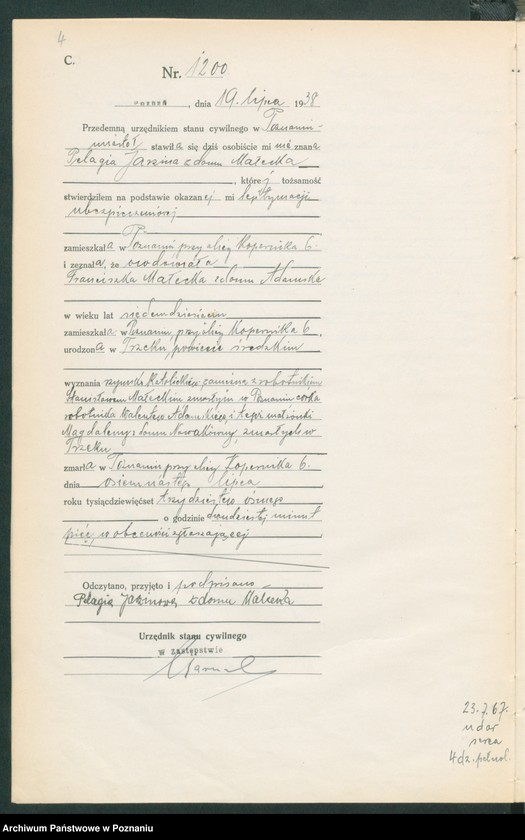 4
C.
Nr. 1200
Poznań, dnia 19. lipca 1938
Przedemną urzędnikiem stanu cywilnego w Poznaniu-
mieście stawiła się dziś osobiście mi nie znana
Pelagia z domu Małecka
, której tożsamość
stwierdziłem na podstawie okazanej mi legitymacji
ubezpieczeniowej
zamieszkała w Poznaniu przy ulicy Kopernika 6
i zeznała, że owdowiała
Franciszka Małecka z domu Adamska
w wieku lat siedemdziesięciu
zamieszkała w Poznaniu, przy ulicy Kopernika 6,
urodzona w Trzeku, powiecie średzkim
wyznania rzymsko katolickiego zamężna z robotnikiem
Stanisławem Małeckim zmarłym w Poznaniu córka
robotnika Walentego Adamskiego, i tegoż małżonki
Magdaleny z domu Nowakówny, zmarłych w
Trzeku
zmarła w Poznaniu przy ulicy Kopernika 6.
dnia osiemnastego lipca
roku tysiącdziewięćset trzydziestego ósmego
o godzinie dwudziestej minut
pięć w obecności zgłaszającej
Odczytano, przyjęto i podpisano
Pelagia z domu Małecka
Urzędnik stanu cywilnego
w zastępstwie
23.7.67.
udar
serca
4 dz.
Archiwum Państwowe w Poznaniu